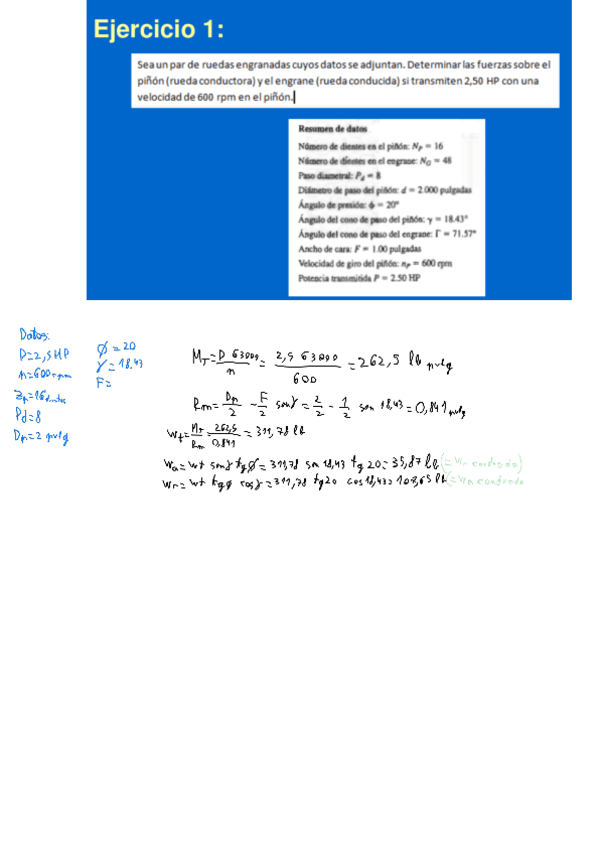 Ejercicio 1:
Sea un par de ruedas engranadas cuyos datos se adjuntan. Determinar las fuerzas sobre el
piñón (rueda conductora) y el engrane (rueda conducida) si transmiten 2,50 HP con una
velocidad de 600 rpm en el piñón.
Resumen de datos
Número de dientes en el piñón: N_P = 16
Número de dientes en el engrane: N_G = 48
Paso diametral: P_d = 8
Diámetro de paso del piñón: d = 2.000 pulgadas
Ángulo de presión: ϕ = 20°
Ángulo del cono de paso del piñón: γ = 18.43°
Ángulo del cono de paso del engrane: Γ = 71.57°
Ancho de cara: F = 1.00 pulgadas
Velocidad de giro del piñón: n_P = 600 rpm
Potencia transmitida P = 2.50 HP
Datos:
P=2,5HP
n=600rpm
Zp=16
Pd=8
Dp=2 pulg
ϕ=20
γ=18.43
F=
M_T = P 63000 / n = 2,5 63000 / 600 = 262,5 lb pulg
Rm = Dp/2 - F/2 senγ = 2/2 - 1/2 sen 18,43 = 0,841 pulg
Wt = M_T/Rm = 262,5/0,841 = 311,78 lb
Wa = Wt senγ tgϕ = 311,78 sen 18,43 tg 20 = 35,87 lb (= Wr
Wr = Wt tgϕ cosγ = 311,78 tg20 cos18,43 = 107,65 lb (= Wa